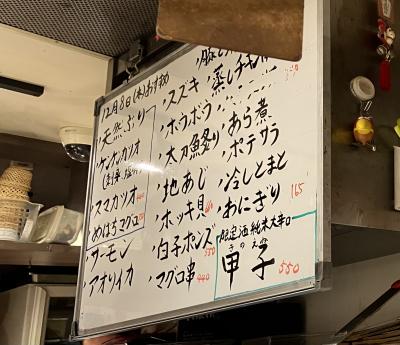 12月8日(木)おすすめ
天然ぶり
ケンケンカツオ
スマカツオ
めばちマグロ
サーモン
アオリイカ
スズキ
ホウボウ
太刀魚炙り
地あじ
ホッキ貝
白子ポンズ 550
マグロ串 440
あら煮
ポテサラ
冷しとまと
おにぎり 165
限定酒 純米大辛口
きのえね
甲子 550